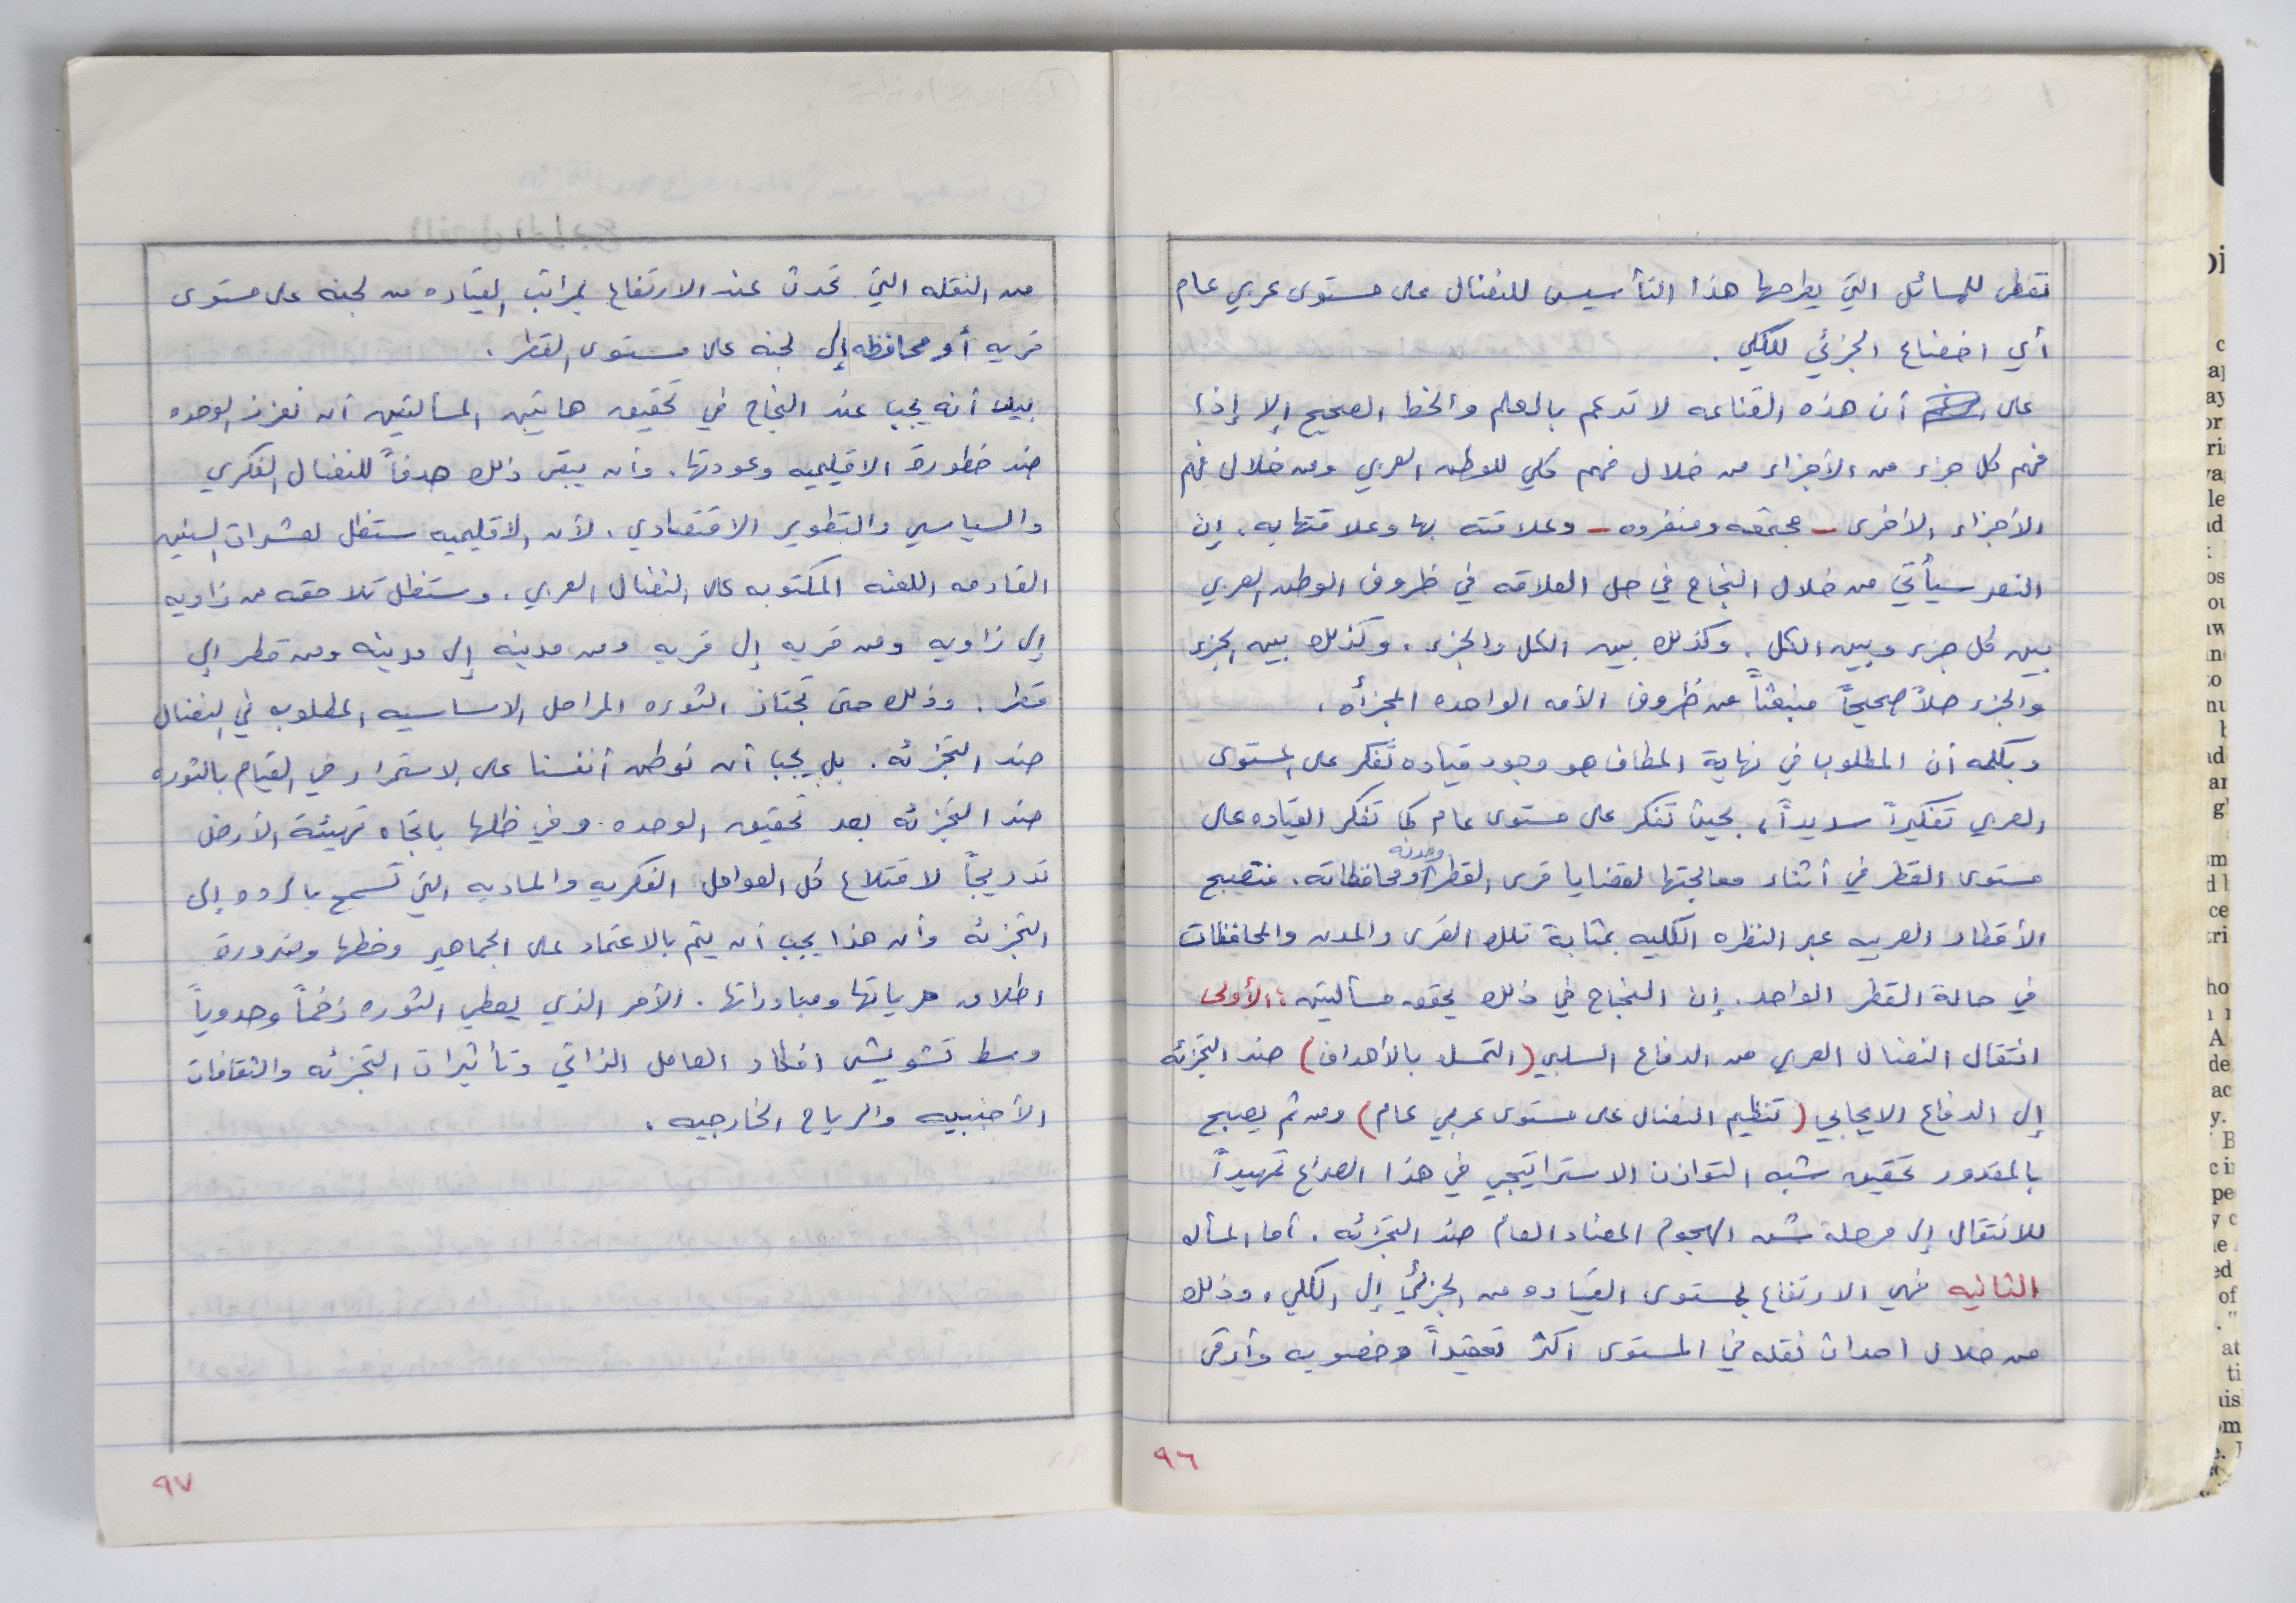 تفطن للمسائل التي يطرحها هذا التأسيس للنضال على مستوى عربي عام
أي اخضاع الجزئي للكلي .
على أن هذه القناعه لا تدعم بالعلم والخط الصحيح إلا إذا
فهم كل جزء من الأجزاء من خلال فهم كلي للوطن العربي ومن خلال فهم
الأجزاء الأخرى - مجتمعه ومنفرده - وعلاقته بها وعلاقتها به . إن
النصر سيأتي من خلال النجاح في حل العلاقه في ظروف الوطن العربي
بين كل جزء وبين الكل . وكذلك بين الكل والجزء . وكذلك بين الجزء
والجزء حلاً صحيحاً منبعثاً من ظروف الأمه الواحده المجزأه .
وبكلمه أن المطلوب في نهاية المطاف هو وجود قياده تفكر على المستوى
العربي تفكيراً سديداً ، بحيث تفكر على مستوى عام كما تفكر القياده على
مستوى القطر في أثناء معالجتها لقضايا قرى القطر ومدنه أو محافظاته . فتصبح
الأقطار العربيه عبر النظره الكليه بمثابة تلك القرى والمدن والمحافظات
في حالة القطر الواحد . إن النجاح في ذلك يحقق مسألتين : الأولى
انتقال النضال العربي من الدفاع السلبي ( التمسك بالأهداف ) ضد التجزئه
إلى الدفاع الايجابي ( تنظيم النضال على مستوى عربي عام ) ومن ثم يصبح
بالمقدور تحقيق شبه التوازن الاستراتيجي في هذا الصراع تمهيداً
للانتقال إلى مرحلة شن الهجوم المضاد العام ضد التجزئه . أما المسأله
الثانيه فهي الارتفاع بمستوى القياده من الجزئي إلى الكلي ، وذلك
من خلال احداث نقله في المستوى اكثر تعقيداً وخصوبه وأرقى
٩٦
من النقله التي تحدث عند الارتفاع بمراتب القياده من لجنه على مستوى
قريه أو محافظه إلى لجنه على مستوى القطر .
بيد أنه يجب عند النجاح في تحقيق هاتين المسألتين أن نعزز الوحده
ضد خطورة الاقليميه وعودتها . وأن يبقى ذلك هدفاً للنضال الفكري
والسياسي والتطوير الاقتصادي . لأن الأقليميه ستظل لعشرات السنين
القادمه اللعنه المكتوبه على النضال العربي . وستظل تلاحقه من زاويه
إلى زاويه ومن قريه إلى قريه ومن مدينه إلى مدينه ومن قطر إلى
قطر . وذلك حتى تجتاز الثوره المراحل الاساسيه المطلوبه في النضال
ضد التجزئه . بل يجب أن نوطن أنفسنا على الاستمرار في القيام بالثوره
ضد التجزئه بعد تحقيق الوحده وفي ظلها باتجاه تهيئة الأرض
تدريجاً لاقتلاع كل العوامل الفكريه والماديه التي تسمح بالرده إلى
التجزئه وأن هذا يجب أن يتم بالاعتماد على الجماهير وخطها وضرورة
اطلاق حرياتها ومبادراتها . الأمر الذي يعطي الثوره زخماً وحدوياً
وسط تشويش افكار العامل الذاتي وتأثيرات التجزئه والثقافات
الأجنبيه والرياح الخارجيه .
٩٧